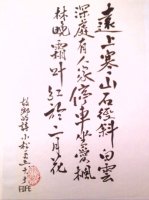 遠上寒山石徑斜白雲
深處有人家停車坐愛楓
林晚霜叶红於二月花